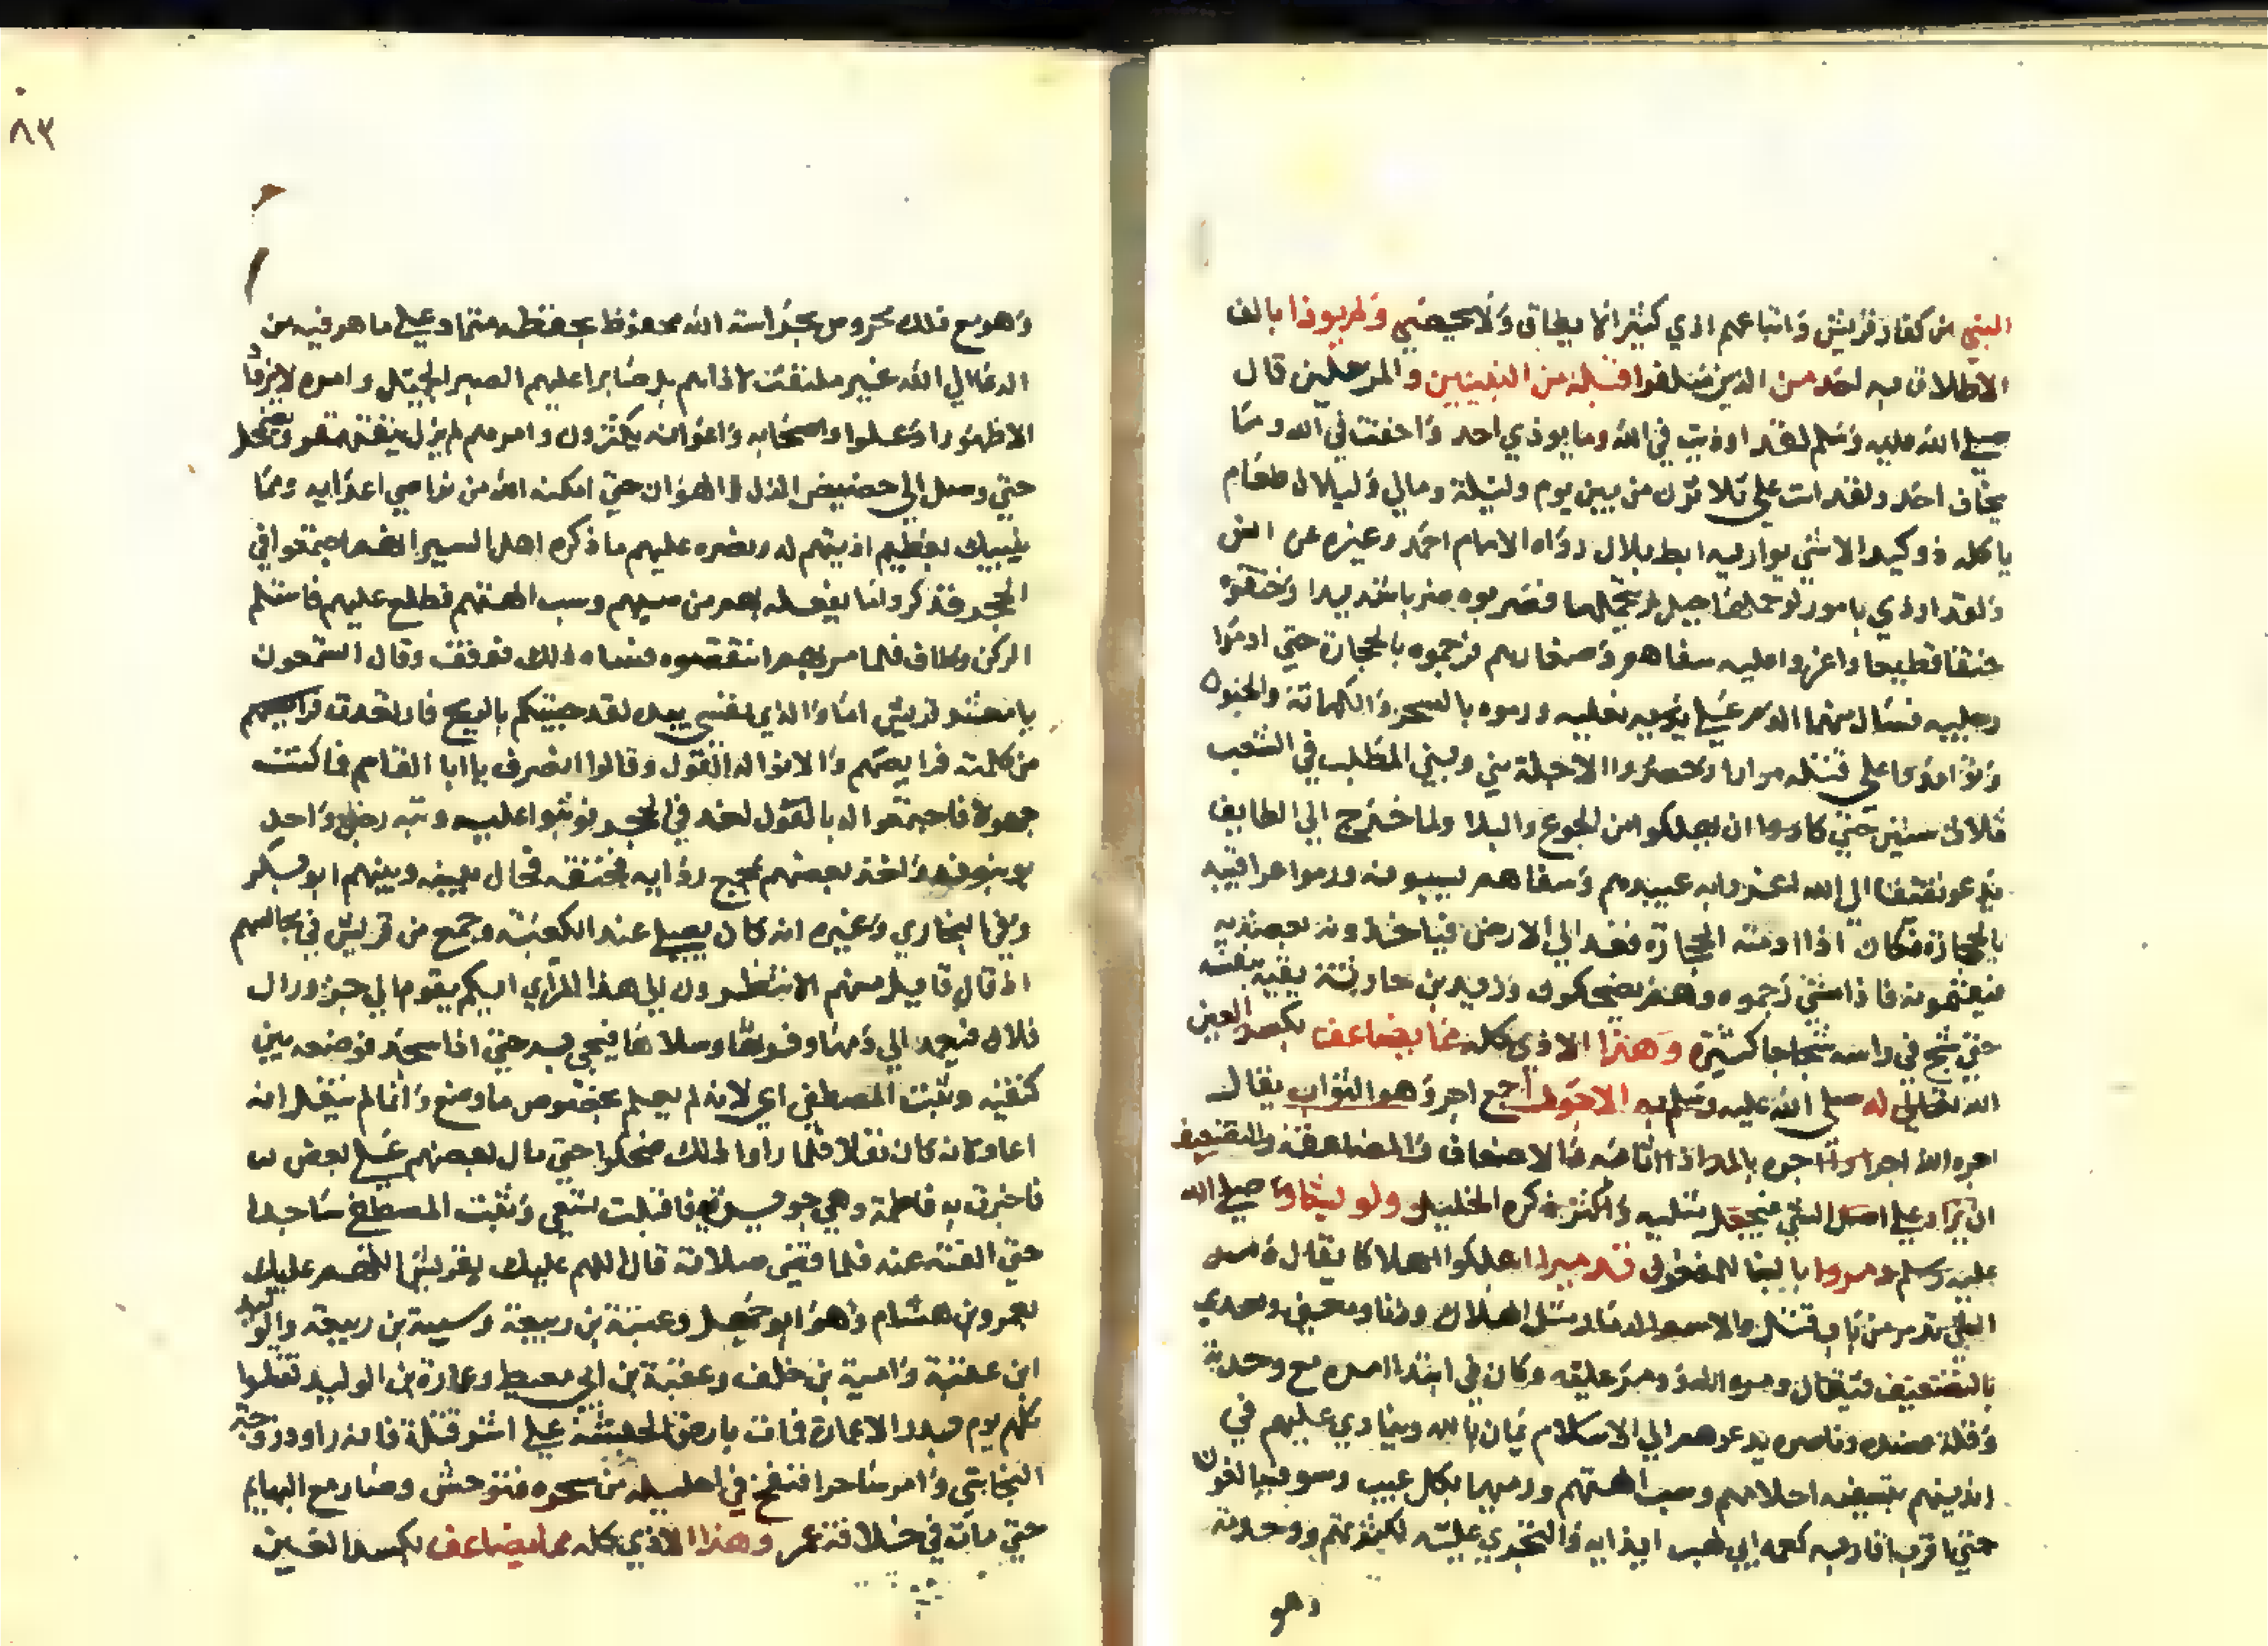 النبي من كفار قريش واتباعهم اذي كثيرا لا يطاق ولا يحصي ولم يوذا بالف
الاطلاق به احد من الذين سلفوا قبله من النبيين والمرسلين قال
صلي الله عليه وسلم لقد اوذيت في الله وما يوذي احد واخفت في الله وما
يخاف احد ولقد اتت علي ثلاثون من بين يوم وليلة ومالي ولبلال طعام
ياكله ذو كبد الا شي يواريه ابط بلال رواه الامام احمد وغيره عن انس
ولقد اوذي بامور لو حملها جبل لم يحملها فضربوه ضربا شديدا وخنقوه
خنقا فظيعا واغروا عليه سفاهم وصغارهم فرجموه بالحجارة حتي ادموا
رجليه فسال منهما الدم علي نعليه ورموه بالسحر والكهانة والجنون
علي قتله مرارا وحصروا لاجله بني وبني المطلب في الشعب
ثلاث سنين حتي كادوا ان يهلكوا من الجوع والبلا ولما خرج الي الطايف
يدعو ثقيفا الي الله اغروا به عبيدهم وسفاهم يسبونه ورموا عراقيبه
بالحجارة فكان اذا الحجارة فقد الي الارض فياخذونه بعضديه
فيقيمونه فاذا مشي رجموه وهم يضحكون وزيد بن حارثة يقيه بنفسه
حتي شج في راسه شجاجا كثيرة وهذا الاذي كله مما يضاعف بكسر العين
الله تعالي له صلي الله عليه وسلم به الاجور جمع اجر وهو الثواب يقال
اجره الله اجرا واجره بالمد اذا اثابه والاضعاف والمضاعفة والتضعيف
ان يزاد علي اصل الشي فيجعل مثليه واكثر ذكره الخليل ولو يشا صلي الله
عليه وسلم دمروا بالبنا للمفعول تدميرا اهلكوا اهلاكا يقال دمر
الشي يدمر من باب قتل والاسم الدمار مثل الهلاك وزنا ومعني ويعدي
بالتضعيف فيقال دمره الله ودمر عليه وكان في ابتدا امره مع وحدته
وقلة عضده وناصره يدعوهم الي الاسلام بالله وينادي عليهم في
انديتهم بتسفيه احلامهم وسب الهتهم ورميها بكل عيب وسو فيبالغون
حتي اقرب اقاربه كعمه ابي لهب ايذايه والتجري عليه لكثرتهم ووحدته
وهو
٨٣
وهو مع ذلك محروس بحراسة الله محفوظ بحفظه متماد علي ما هو فيه من
الدعا الي الله غير ملتفت لاذاهم بل صابرا عليهم الصبر الجميل وامره لا يزداد
الا ظهورا وعلوا واصحابه واعوانه يكثرون وامرهم لم يزل
حتي وصل الي حضيض الذل والهوان حتي امكنه الله من نواصي اعدايه ومما
ينبيك بعظيم اذيتهم له ونصره عليهم ما ذكره اهل السير انهم اجتمعوا في
الحجر فذكروا ما يفعله بهم من سبهم وسب الهتهم فطلع عليهم فاستلم
الركن وطاف فلما مر بهم انتقصوه فساه ذلك فوقف وقال اتسمعون
يا معشر قريش اما والذي نفسي بيده لقد جيتكم بالذبح فارتعدت فرايصهم
من كلمته فرايصهم والانوا له القول وقالوا انصرف يا ابا القاسم فما كنت
جهولا فاجتمعوا له بالقول لغد في الحجر فوثبوا عليه وثبة رجل واحد
يوبخونه واخذ بعضهم بمجمع ردايه فخنقه فحال بينه وبينهم ابو بكر
وفي البخاري وغيره انه كان يصلي عند الكعبة وجمع من قريش في مجالسهم
اذ قال قايل منهم الا تنظرون الي هذا المراي ايكم يقوم الي جزور ال
فلان فيعمد الي دمها وفرثها وسلاها فيجي به حتي اذا سجد فوضعه بين
كتفيه وثبت المصطفي اي لانه لم يعلم بخصوص ما وضع وانما لم ينقل انه
اعاد كانه كان نفلا فلما راوا ذلك ضحكوا حتي مال بعضهم علي بعض
فاخبرت به فاطمة وهي جويرية فاقبلت تسعي وثبت المصطفي ساجدا
حتي القته عنه فلما قضي صلاته قال اللهم عليك بقريش اللهم عليك
بعمرو بن هشام وهو ابو جهل وعتبة بن ربيعة وشيبة بن ربيعة والوليد
ابن عقبة وامية بن خلف وعقبة بن ابي معيط وعمارة بن الوليد فقتلوا
كلهم يوم بدر الا عمارة فمات بارض الحبشة علي اشر قتلة فانه راود زوجة
النجاشي وامر ساحرا فنفخ في احليله من سحره فتوحش وصار مع البهايم
حتي مات في خلافة عمر وهذا الاذي كله مما يضاعف بكسر العين